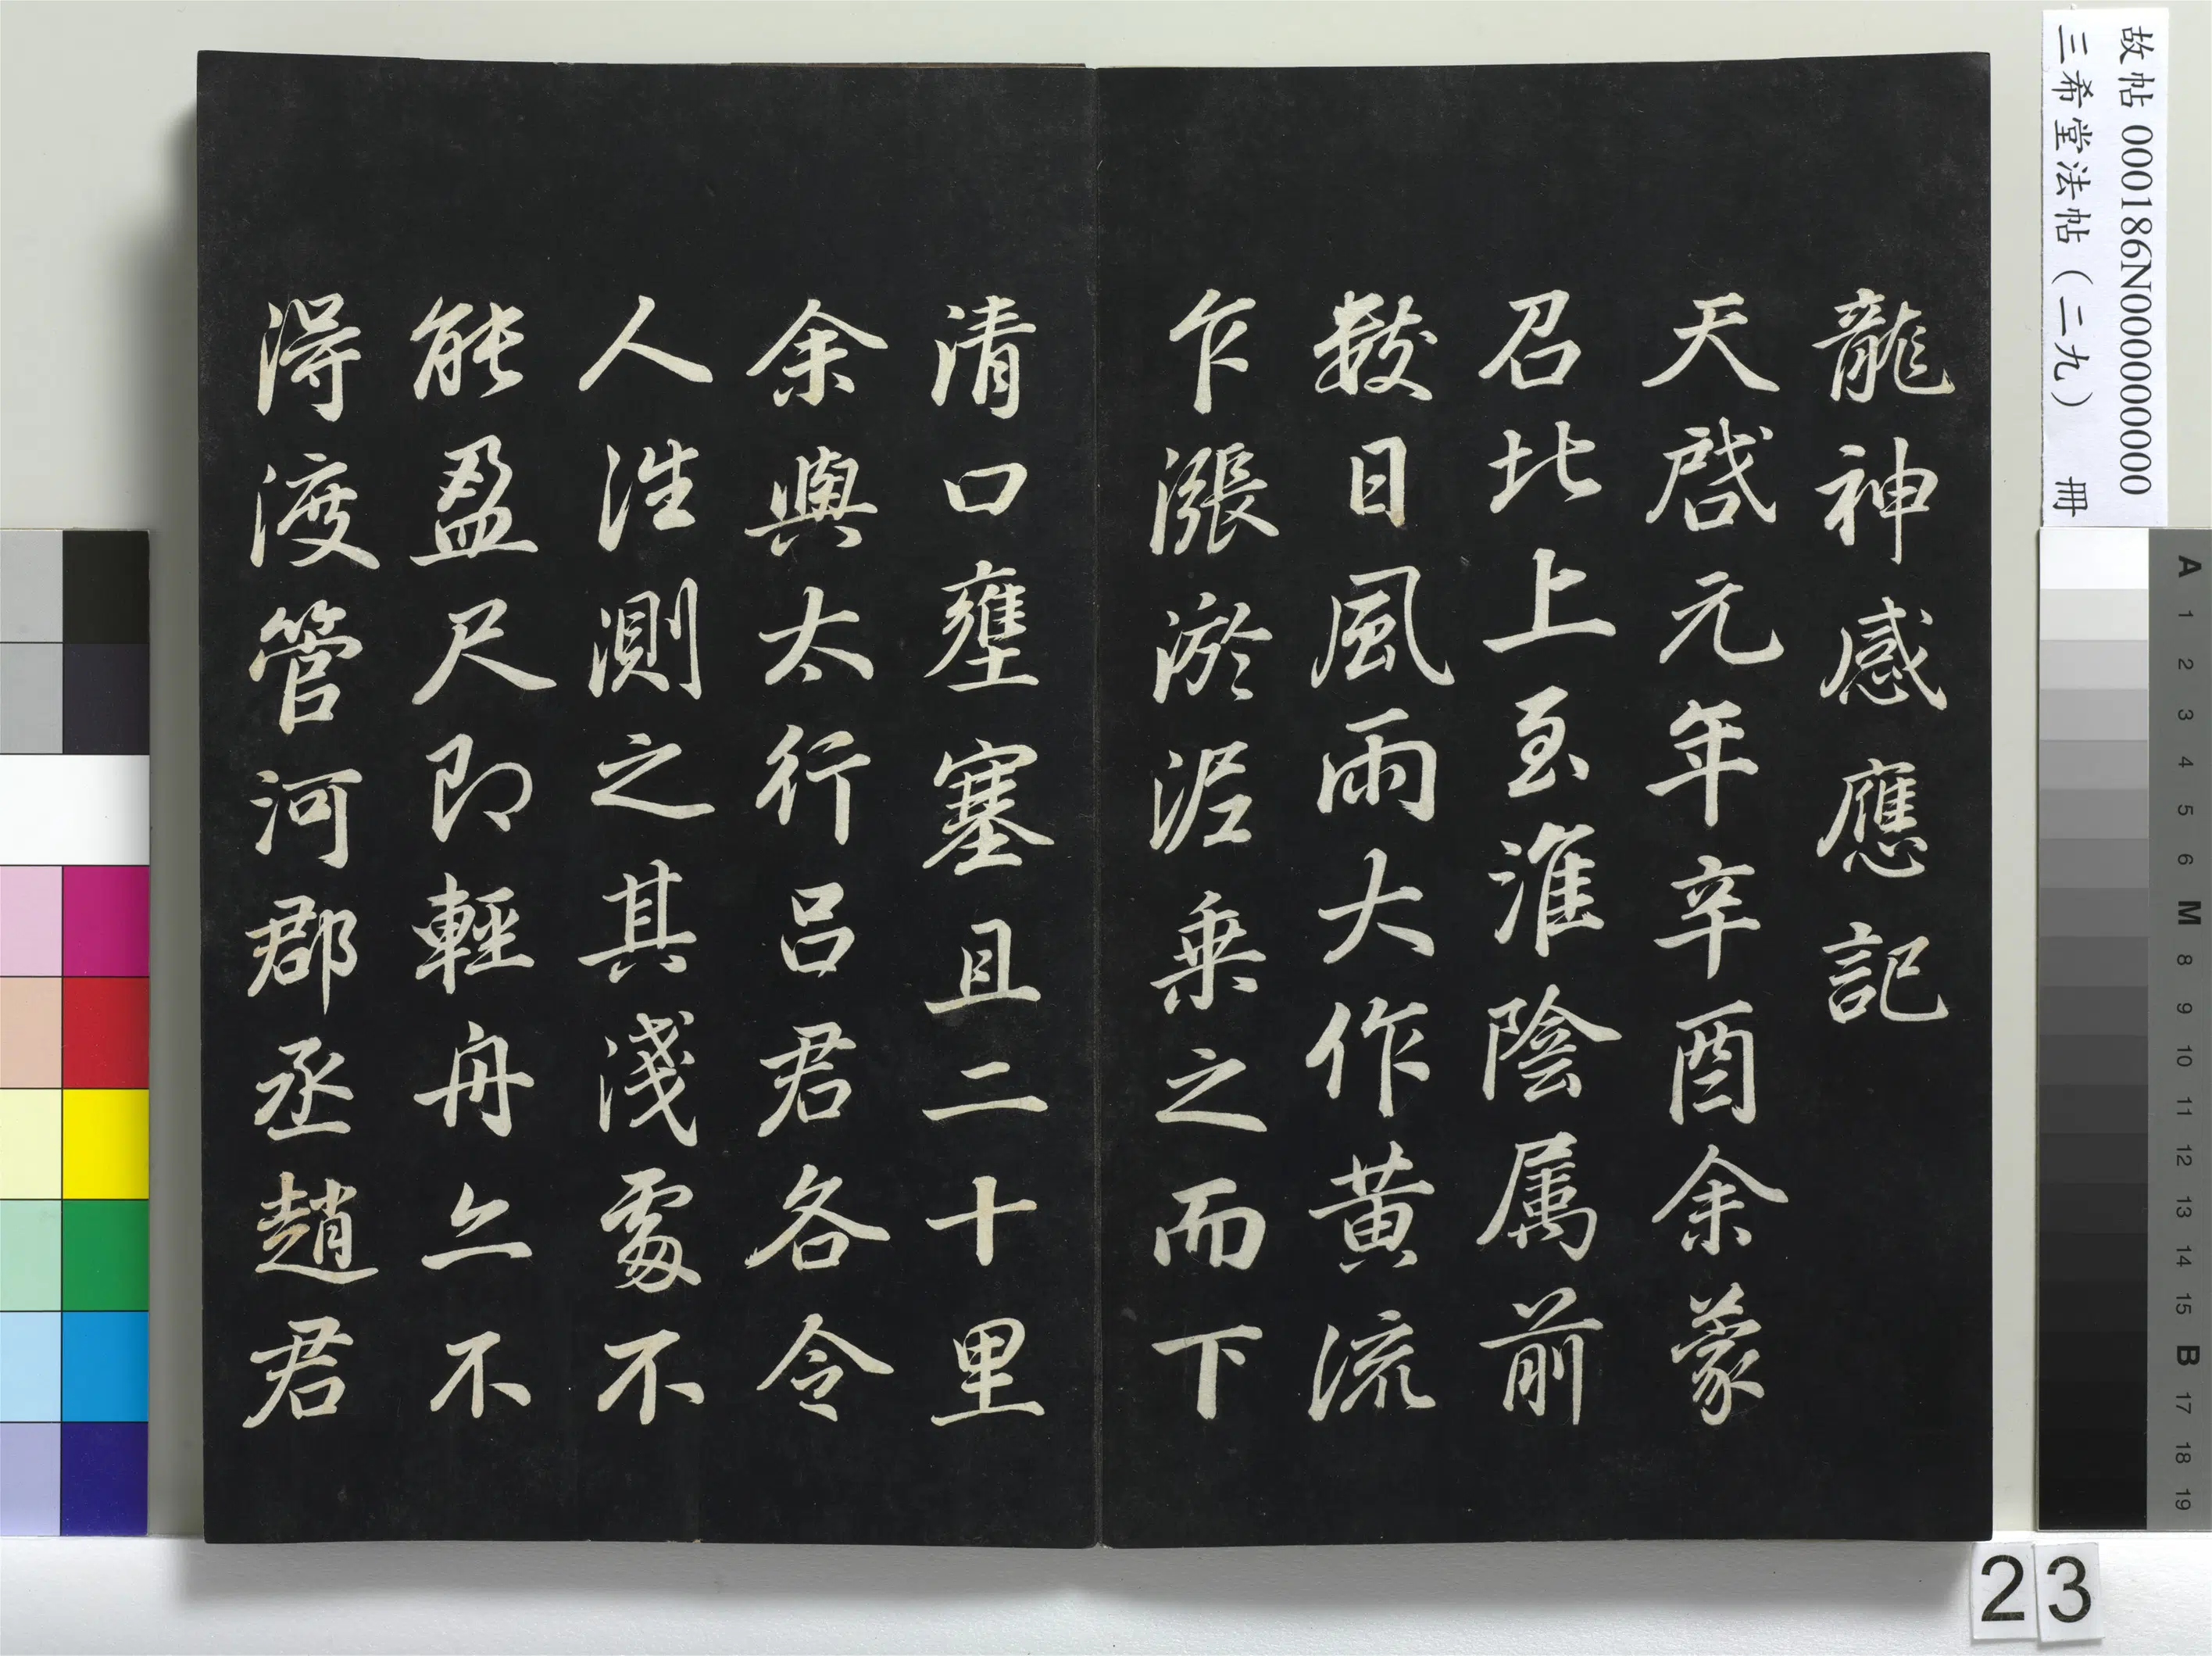 龍神感應記
天啓元年辛酉余蒙
召北上至淮陰属前
数日風雨大作黄流
乍漲淤泥乗之而下
清口壅塞且二十里
余與太行呂君各令
人往測之其淺處不
能盈尺即輕舟亦不
得渡管河郡丞趙君
故帖 000186N000000000
三希堂法帖（二九） 冊
A 1 2 3 4 5 6 M 8 9 10 11 12 13 14 15 B 17 18 19
23